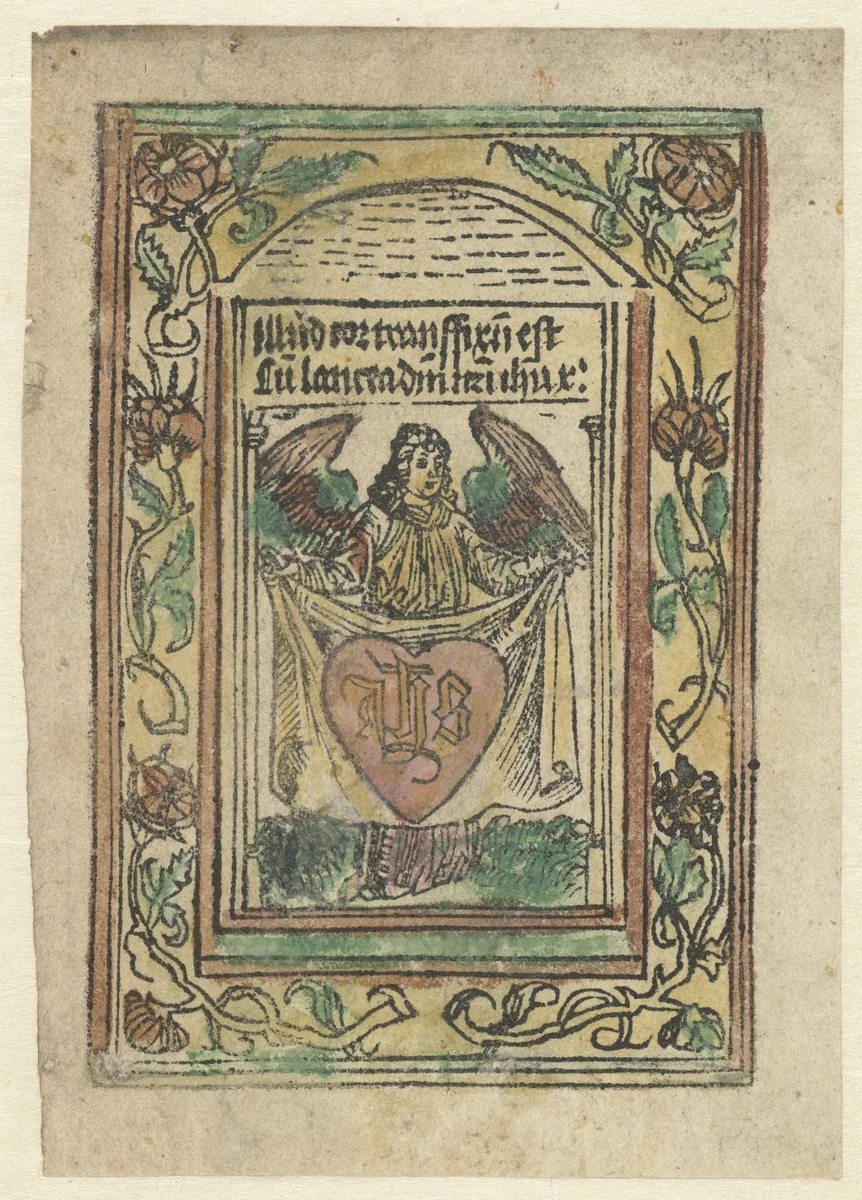 Illud cor transfixū est
Cū lancea dn̄i nr̄i ihu x:
ihs